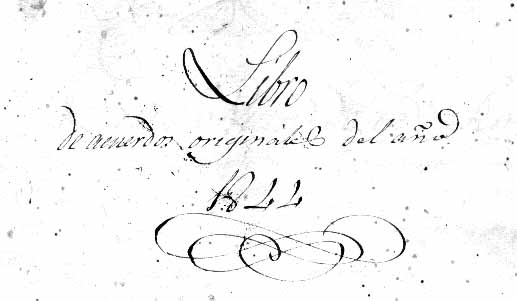 Libro
de acuerdos originales del año
1844